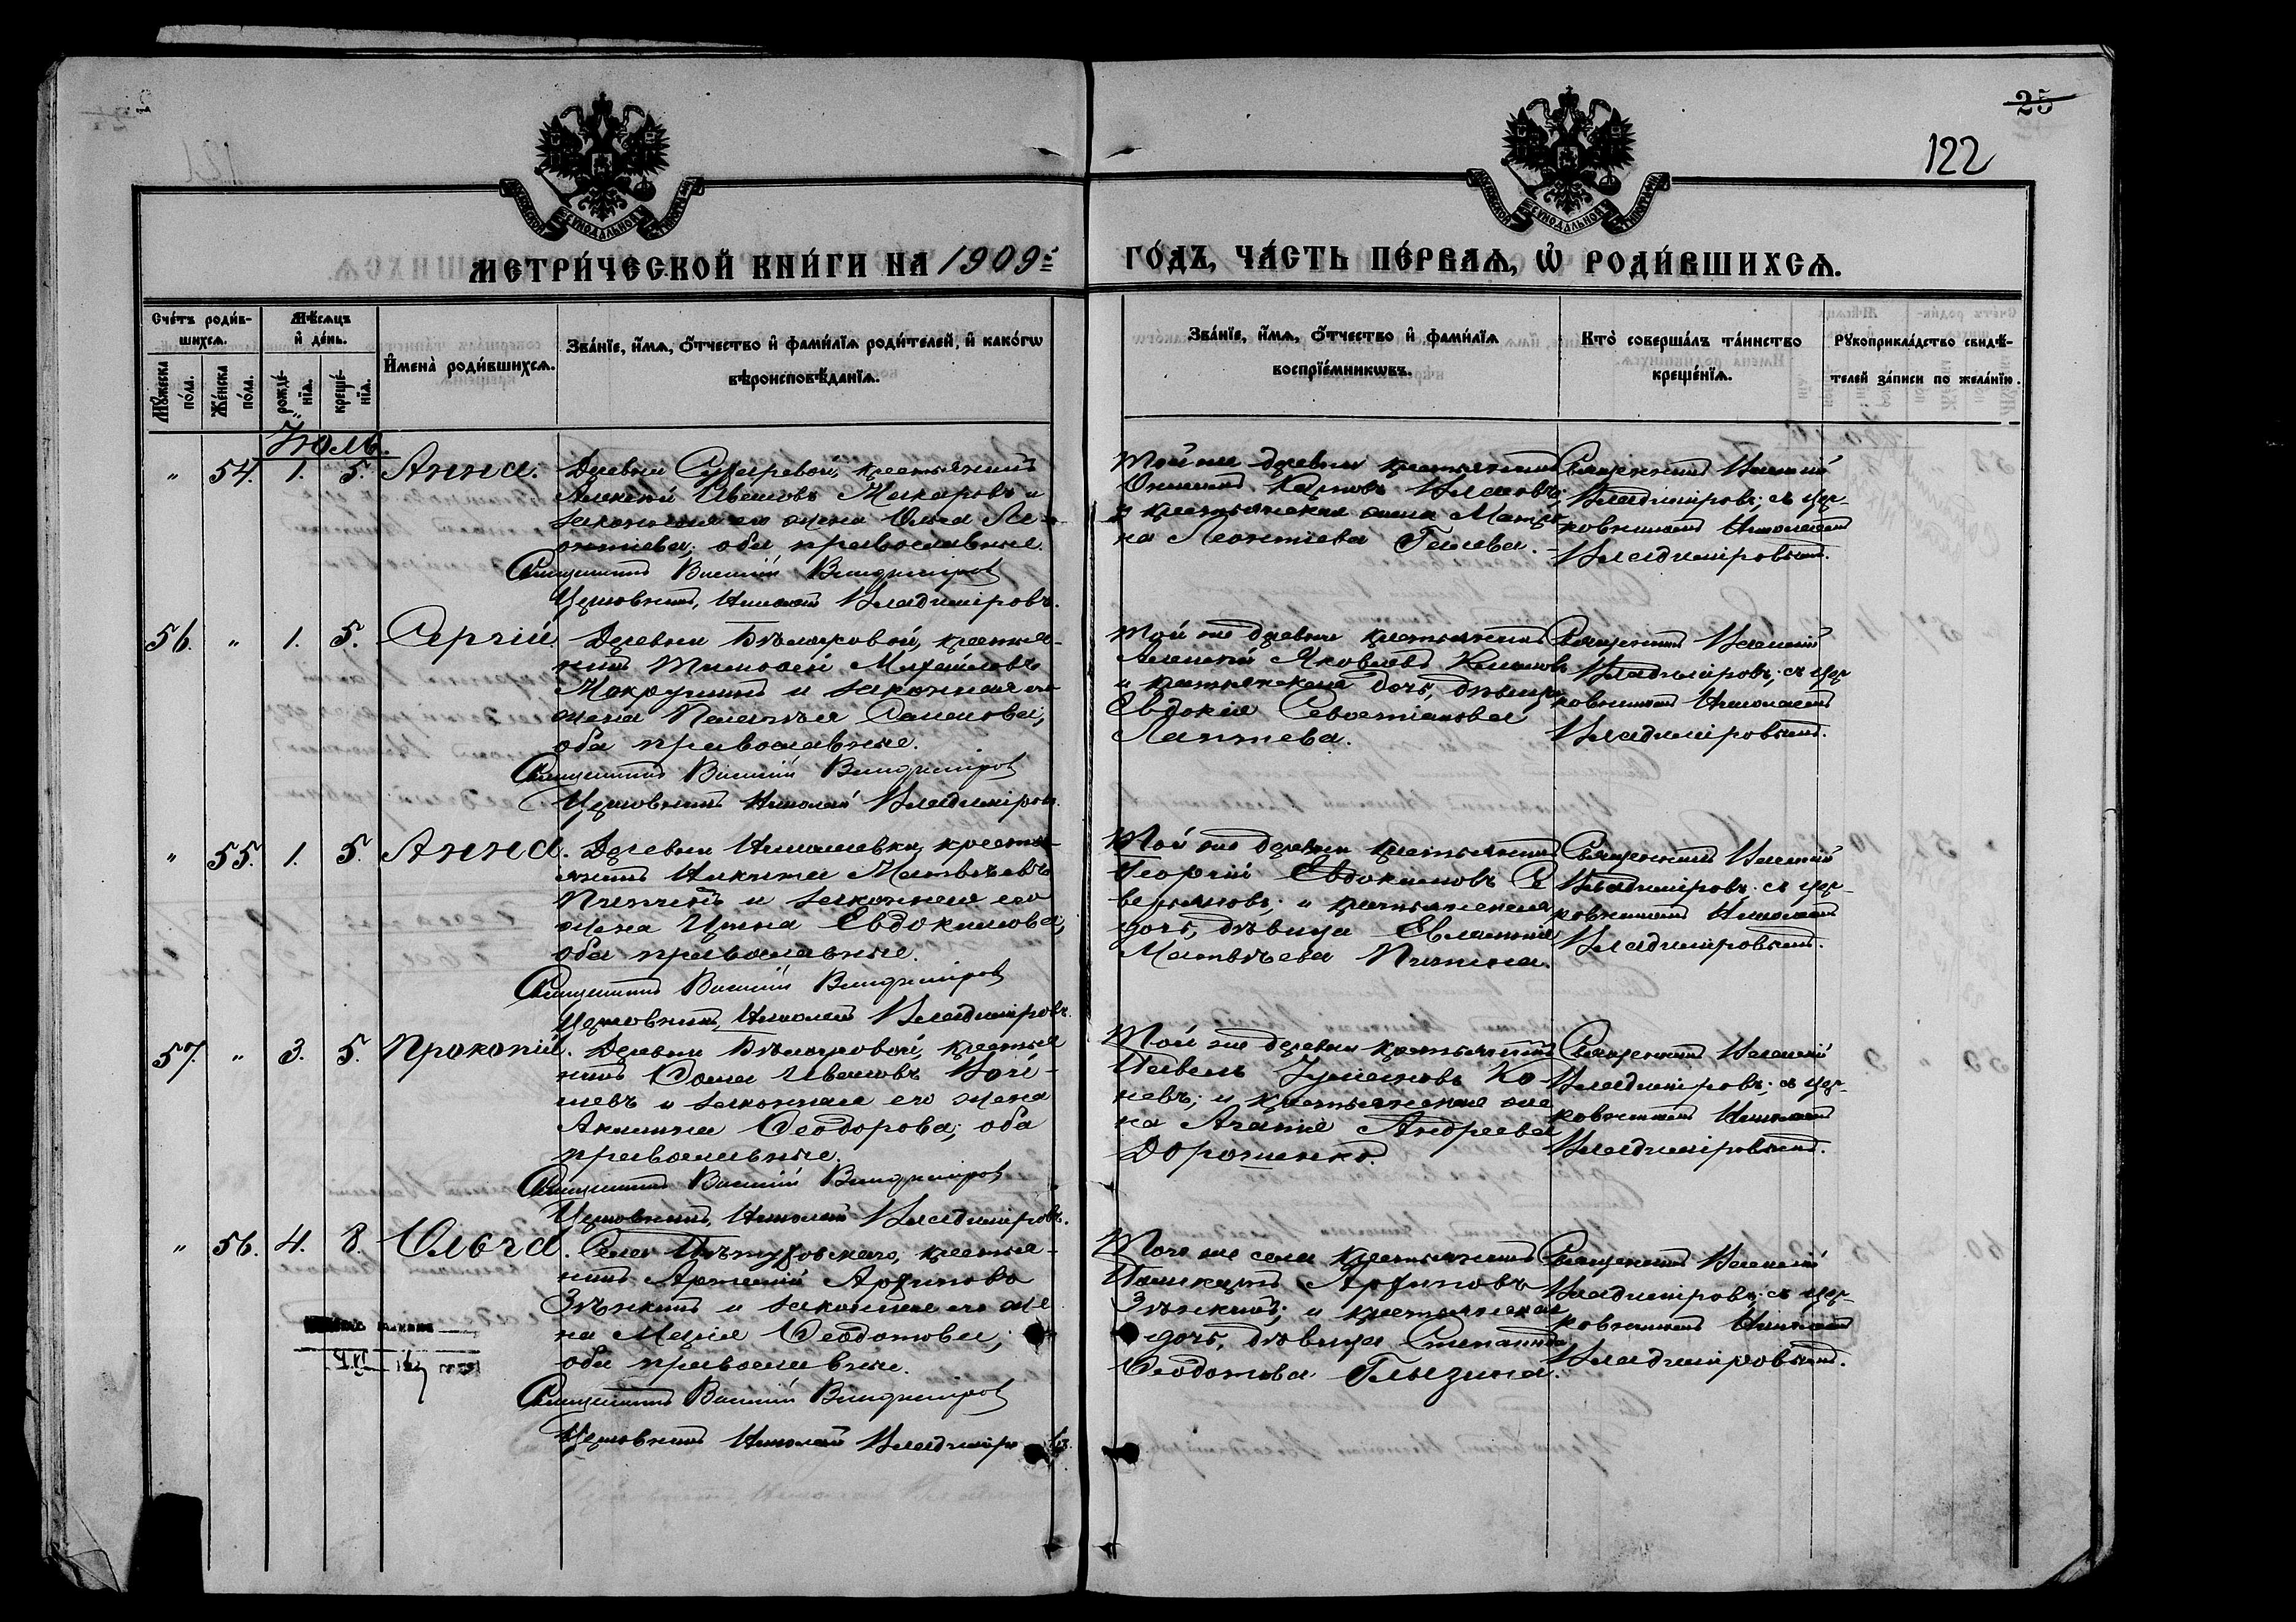 25
122
МЕТРИ́ЧЕСКОЙ КНИ́ГИ НА 1909й
ГО́ДЪ, ЧА́СТЬ ПЕ́РВАѦ, Ѡ҆ РОДИ́ВШИХСѦ.
Сче́тъ роди́в-
шихсѧ.
Мꙋ́жеска по́ла.
Же́нска по́ла.
Мѣ́сѧцъ
и҆ де́нь.
рожде́-нїѧ.
креще́-нїѧ.
И҆мена̀ роди́вшихсѧ.
Зва́нїе, и҆́мѧ, ѻ҆́тчество и҆ фами́лїѧ роди́телей, и҆ како́гѡ
вѣроисповѣ́данїѧ.
Зва́нїе, и҆́мѧ, ѻ҆́тчество и҆ фами́лїѧ
воспрїе́мникѡвъ.
Кто̀ соверша́лъ та́инство
креще́нїѧ.
Рꙋкоприкла́дство свидѣ́-
телей за́писи по жела́нїю.
Іюль.
" 54. 1. 5. Анна.
Деревни крестьянинъ
Алексѣй Ивановъ Макаровъ и
законная его жена Ольга Ле-
онтіева; оба православные.
Священникъ Василій Владиміровъ
Церковникъ Николай Владиміровъ.
Той же деревни крестьянинъ
Карповъ
и крестьянская жена Матро-
на Леонтіева
Священникъ Василій
Владиміровъ; съ цер-
ковникомъ Николаемъ
Владиміровымъ.
56. " 1. 5. Сергій.
Деревни крестья-
нинъ Тимоѳей Михайловъ
Мокрушинъ и законная его
жена Пелагія
оба православные.
Священникъ Василій Владиміровъ
Церковникъ Николай Владиміровъ.
Той же деревни крестьянинъ
Алексѣй Яковлевъ
и крестьянская дочь, дѣвица
Евдокія Севастіанова
Лаптева.
Священникъ Василій
Владиміровъ; съ цер-
ковникомъ Николаемъ
Владиміровымъ.
" 55. 1. 5. Анна.
Деревни Николаевки, кресть-
янинъ Никита Матвѣевъ
и законная его
жена Ирина Евдокимова,
оба православные.
Священникъ Василій Владиміровъ
Церковникъ, Николай Владиміровъ.
Той же деревни крестьянинъ
Георгій Евдокимовъ Се
верьяновъ; и крестьянская
дочь, дѣвица
Матвѣева
Священникъ Василій
Владиміровъ; съ цер-
ковникомъ Николаемъ
Владиміровымъ.
57. " 3. 5. Прокопій.
Деревни крестья
нинъ Ѳома Ивановъ
и законная его жена
Акилина Ѳеодорова; оба
православные.
Священникъ Василій Владиміровъ
Церковникъ, Николай Владиміровъ.
Той же деревни крестьянинъ
Павелъ Ко-
невъ; и крестьянская же
на Агапія Андреева
Дорошенко.
Священникъ Василій
Владиміровъ; съ цер-
ковникомъ Николаемъ
Владиміровымъ.
" 56. 4. 8. Ольга.
Села Пѣтуховскаго, крестья-
нинъ Артемій Архиповъ
Зѣнкинъ и законная его же
на Марія Ѳеодотова;
оба православные.
Священникъ Василій Владиміровъ
Церковникъ Николай Владиміровъ.
Того же села крестьянинъ
Архиповъ
Зѣнкинъ; и крестьянская
дочь, дѣвица Степанида
Ѳеодотова Глызина.
Священникъ Василій
Владиміровъ; съ цер-
ковникомъ Николаемъ
Владиміровымъ.